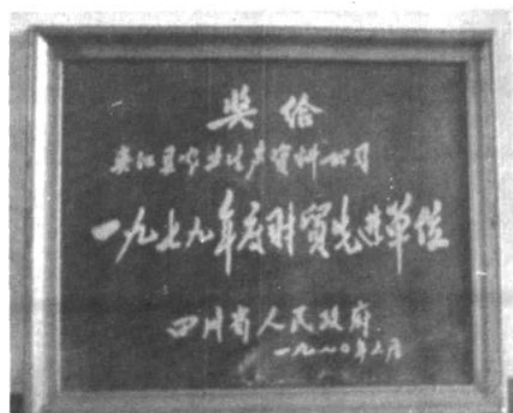 奖给
夹江县农业生产资料公司
一九七九年度财贸先进单位
四川省人民政府
一九八〇年 月